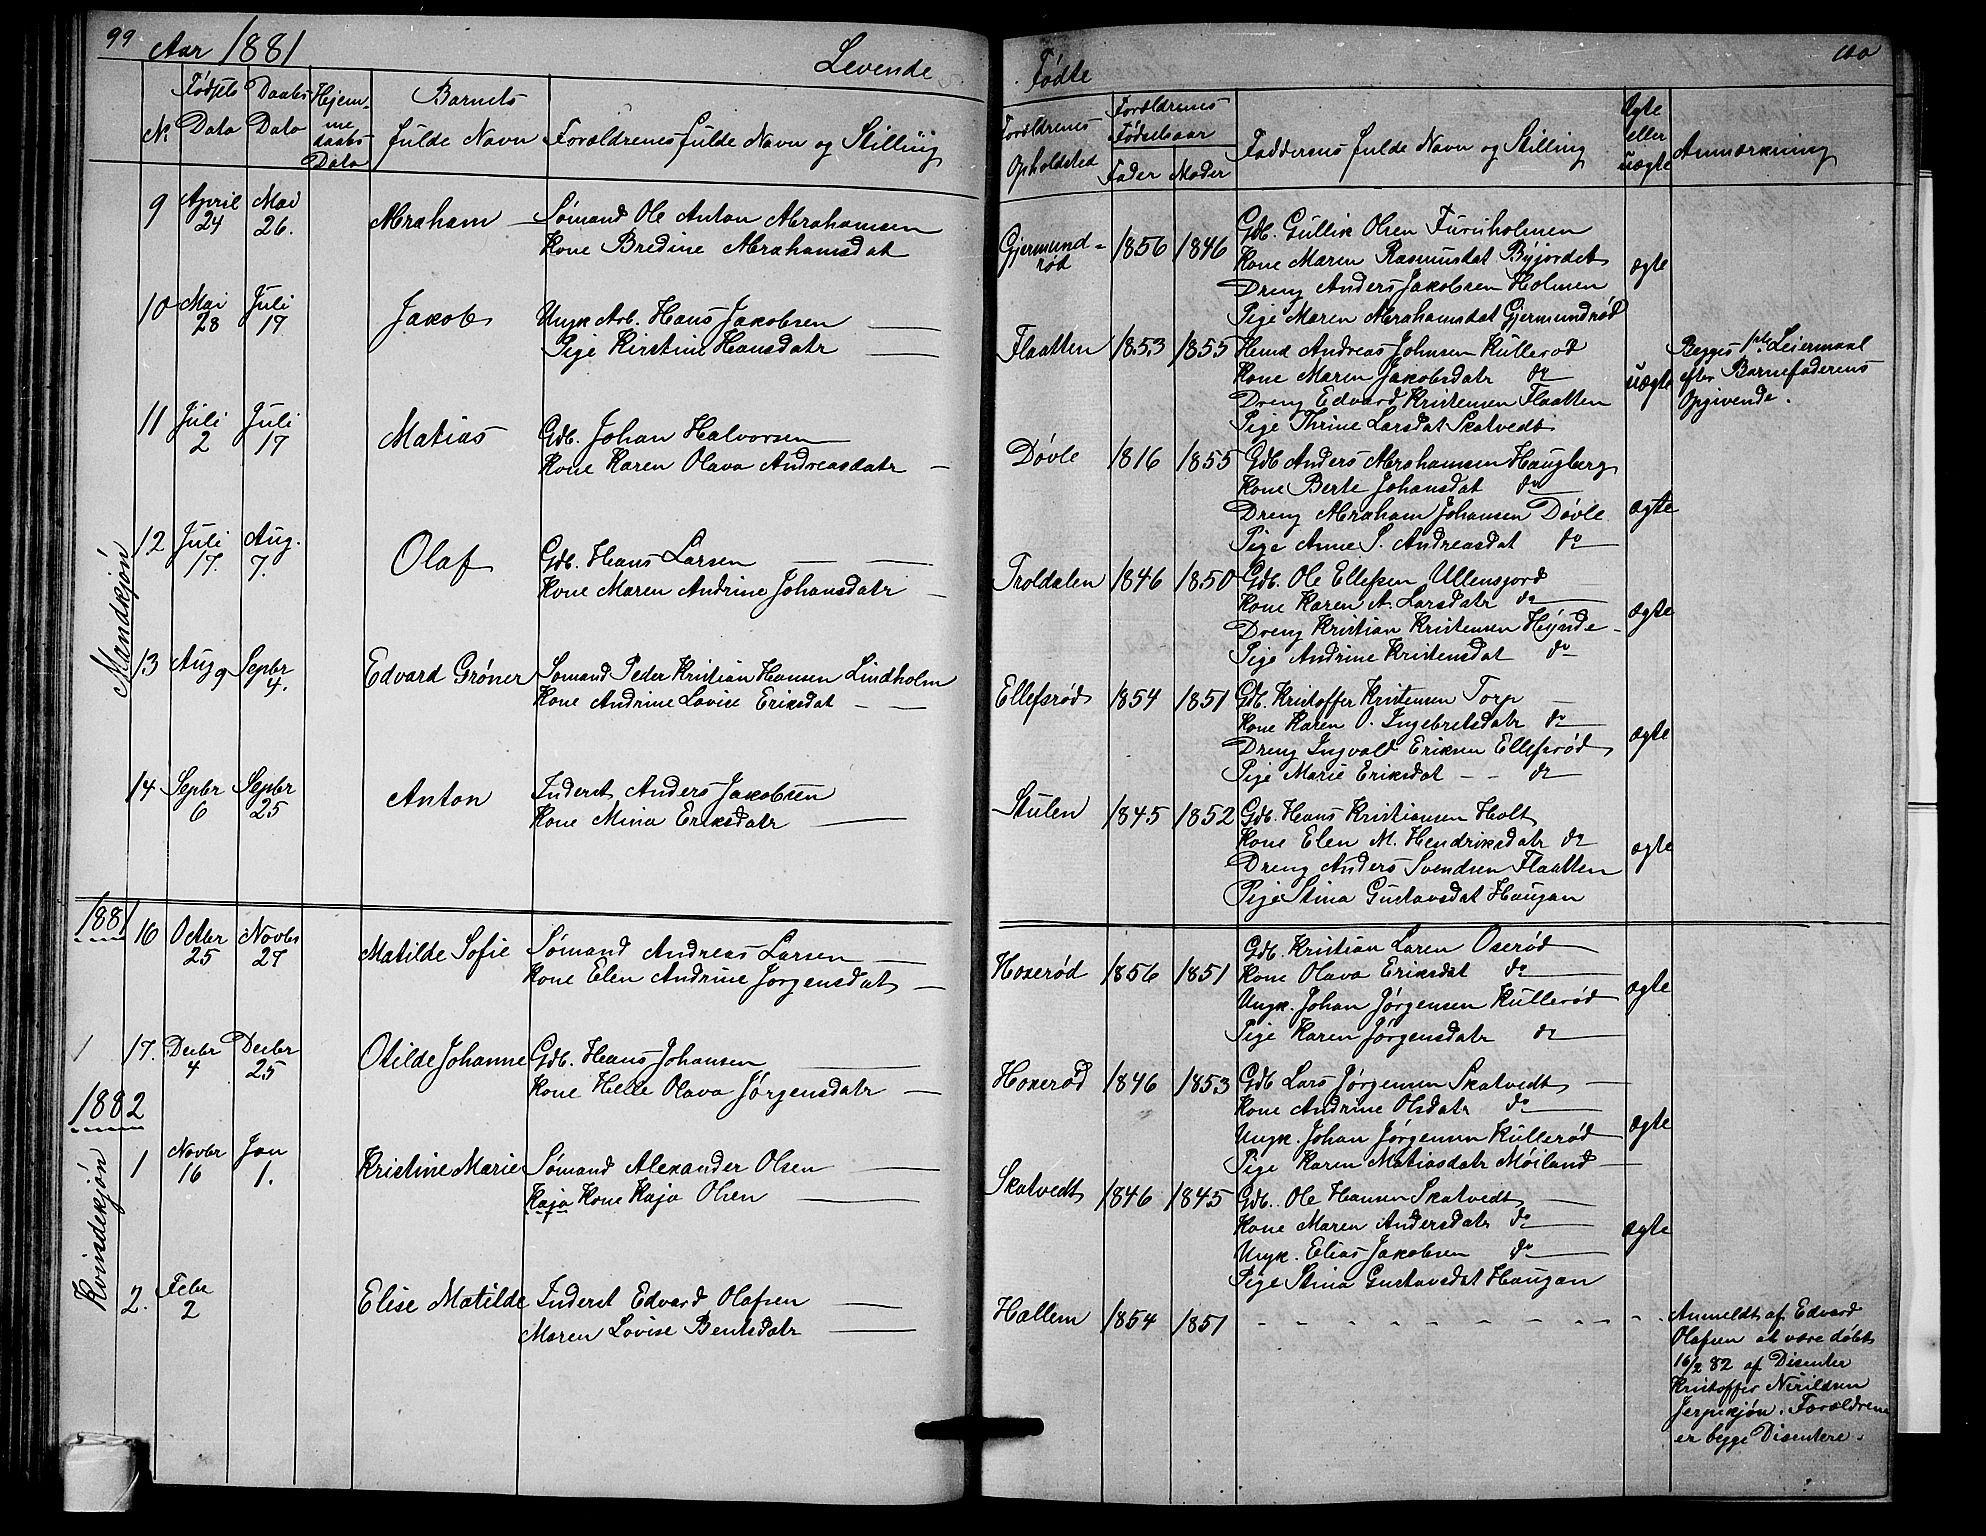 99 Aar 1881 Levende Fødte 100
No. Fødsels Dato Daabs Dato Hjemmedaabs Dato Barnets fulde Navn Forældrenes fulde Navn og Stilling Forældrenes Opholdsted Forældrenes Fødselsaar Fader Moder Faddernes fulde Navn og Stilling Ægte eller uægte Anmærkning
Mandkjøn
9 April 24 Mai 26. Abraham Sømand Ole Anton Abrahamsen
Kone Bredine Abrahamsdat
Gjermundrød 1856 1846 Gdb. Gullik Olsen Furuholmen
Kone Maren Rasmusdat Byjordet ægte
Dreng Anders Jakobsen Holmen
Pige Maren Abrahamsdat Gjermundrød
10 Mai 28 Juli 17 Jakob Ungk Arb. Hans Jakobsen
Pige Kirstine Hansdatr
Flaatten 1853 1855 Hemd Andreas Johnsen Kullerød
Kone Maren Jakobsdatr do uægte
Dreng Edvard Kristensen Flaatten
Pige Thrine Larsdat Skatvedt
Begges 1ste Leiermaal
efter Barnefaderens
Opgivende.
11 Juli 2 Juli 17 Matias Gdb. Johan Halvorsen
Kone Karen Olava Andreasdatr
Døvle 1816 1855 Gdb Anders Abrahamsen Haugberg
Kone Berte Johansdat do
Dreng Abraham Johansen Døvle ægte
Pige Anne S. Andreasdat do
12 Juli 17. Aug. 7. Olaf Gdb. Hans Larsen
Kone Maren Andrine Johansdatr
Troldalen 1846 1850 Gdb. Ole Ellefsen Ullensjord
Kone Karen A. Larsdatr do ægte
Dreng Kristian Kristensen Hynde
Pige Andrine Kristensdat do
13 Aug 9 Sepbr 4. Edvard Grøner Sømand Peder Kristian Hansen Lindholm
Kone Andrine Lovise Eriksdat
Ellefsrød 1854 1851 Gdb. Kristoffer Kristensen Torp
Kone Karen O. Ingebretsdatr do
Dreng Ingvald Eriksen Ellefsrød ægte
Pige Marie Eriksdat do
14 Sepbr 6 Sepbr 25 Anton Inderst Anders Jakobsen
Kone Mina Eriksdatr
Stulen 1845 1852 Gdb. Hans Kristiansen Holt
Kone Elen M. Hendriksdatr do ægte
Dreng Anders Svendsen Flaatten
Pige Stina Gustavsdat Haugan
1881
Kvindekjøn
16 Octbr 25 Novbr 27 Matilde Sofie Sømand Andreas Larsen
Kone Elen Andrine Jørgensdat
Hoxerød 1856 1851 Gdb. Kristian Laren Oserød
Kone Olava Eriksdat do ægte
Ungk. Johan Jørgensen Kullerød
Pige Karen Jørgensdatr do
17. Decbr 4 Decbr 25 Otilde Johanne Gdb. Hans Johansen
Kone Helle Olava Jørgensdatr
Hoxerød 1846 1853 Gdb Lars Jørgensen Skatvedt
Kone Andrine Olsdatr do
Ungk. Johan Jørgensen Kullerød ægte
Pige Karen Matiasdatr Møiland
1882
1 Novbr 16 Jan 1. Kristine Marie Sømand Alexander Olsen
Kaja Kone Kaja Olsen
Skatvedt 1846 1845 Gdb. Ole Hansen Skatvedt
Kone Maren Andersdatr do ægte
Ungk. Elias Jakobsen do
Pige Stina Gustavsdat Haugan
2. Febr 2 Elise Matilde Inderst Edvard Olafsen
Maren Lovise Bentsdatr
Hallem 1854 1851
Anmeldt af Edvard
Olafsen at være døbt
16/2 82 af Disenter
Kristoffer
Jerpekjøn. Forældrene
er begge Disentere.